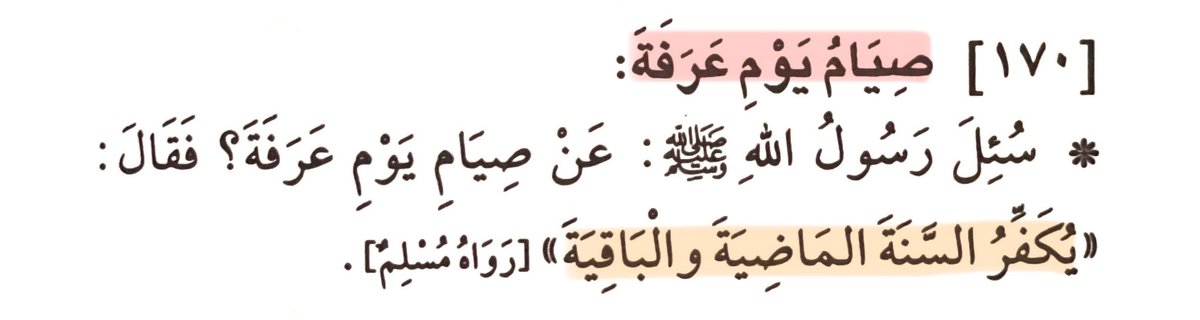 [١٧٠] صِيَامُ يَوْمِ عَرَفَةَ:
* سُئِلَ رَسُولُ اللهِ ﷺ: عَنْ صِيَامِ يَوْمِ عَرَفَةَ؟ فَقَالَ:
«يُكَفِّرُ السَّنَةَ المَاضِيَةَ والْبَاقِيَةَ» [رَوَاهُ مُسْلِمٌ].